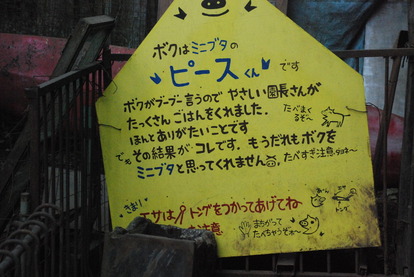 ボクはミニブタの
ピースくん です
ボクがブーブー言うので やさしい園長さんが
たっくさん ごはんをくれました.
ほんとありがたいことです
でも その結果が コレです. もうだれもボクを
ミニブタと思ってくれません
たべまくるぞ〜
たべすぎ注意
きまり
エサは トングをつかってあげてね
トング
注意
まちがって
たべちゃうぞぉ〜